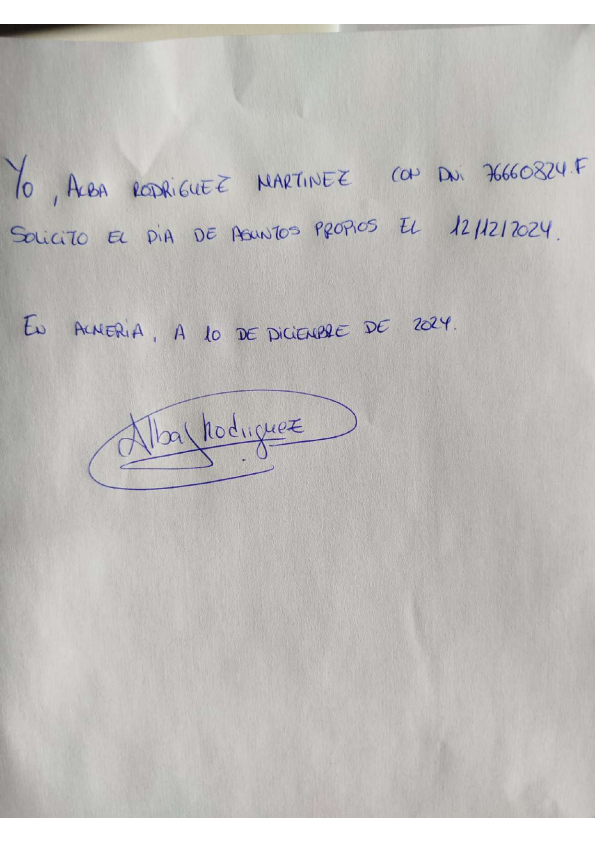 Yo, ALBA RODRIGUEZ MARTINEZ CON DNi 76660824.F
SOLICITO EL DIA DE ASUNTOS PROPIOS EL 12/12/2024.
EN ALMERIA, A 10 DE DICIEMBRE DE 2024.
Alba Rodriguez